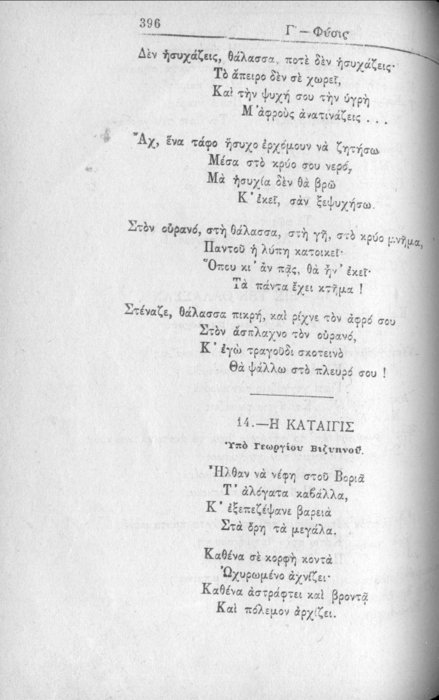 396
Γ′ — Φύσις
Δὲν ἡσυχάζεις, θάλασσα, ποτὲ δὲν ἡσυχάζεις·
Τὸ ἄπειρο δὲν σὲ χωρεῖ,
Καὶ τὴν ψυχή σου τὴν ὑγρὴ
Μ’ ἀφροὺς ἀνατινάζεις . . .
Ἄχ, ἕνα τάφο ἥσυχο ἐρχόμουν νὰ ζητήσω
Μέσα στὸ κρύο σου νερό,
Μὰ ἡσυχία δὲν θὰ βρῶ
Κ’ ἐκεῖ, σὰν ξεψυχήσω.
Στὸν οὐρανό, στὴ θάλασσα, στὴ γῆ, στὸ κρύο μνῆμα,
Παντοῦ ἡ λύπη κατοικεῖ·
Ὅπου κι’ ἂν πᾷς, θὰ ἦν’ ἐκεῖ·
Τὰ πάντα ἔχει κτῆμα !
Στέναζε, θάλασσα πικρή, καὶ ρίχνε τὸν ἀφρό σου
Στὸν ἄσπλαχνο τὸν οὐρανό,
Κ’ ἐγὼ τραγοῦδι σκοτεινὸ
Θὰ ψάλλω στὸ πλευρό σου !
14.—Η ΚΑΤΑΙΓΙΣ
Ὑπὸ Γεωργίου Βιζυηνοῦ.
Ἦλθαν νὰ νέφη στοῦ Βοριᾶ
Τ’ ἀλόγατα καβάλλα,
Κ’ ἐξεπεζέψανε βαρειὰ
Στὰ ὄρη τὰ μεγάλα.
Καθένα σὲ κορφὴ κοντὰ
Ὠχυρωμένο ἀχνίζει·
Καθένα ἀστράφτει καὶ βροντᾷ
Καὶ πόλεμον ἀρχίζει.